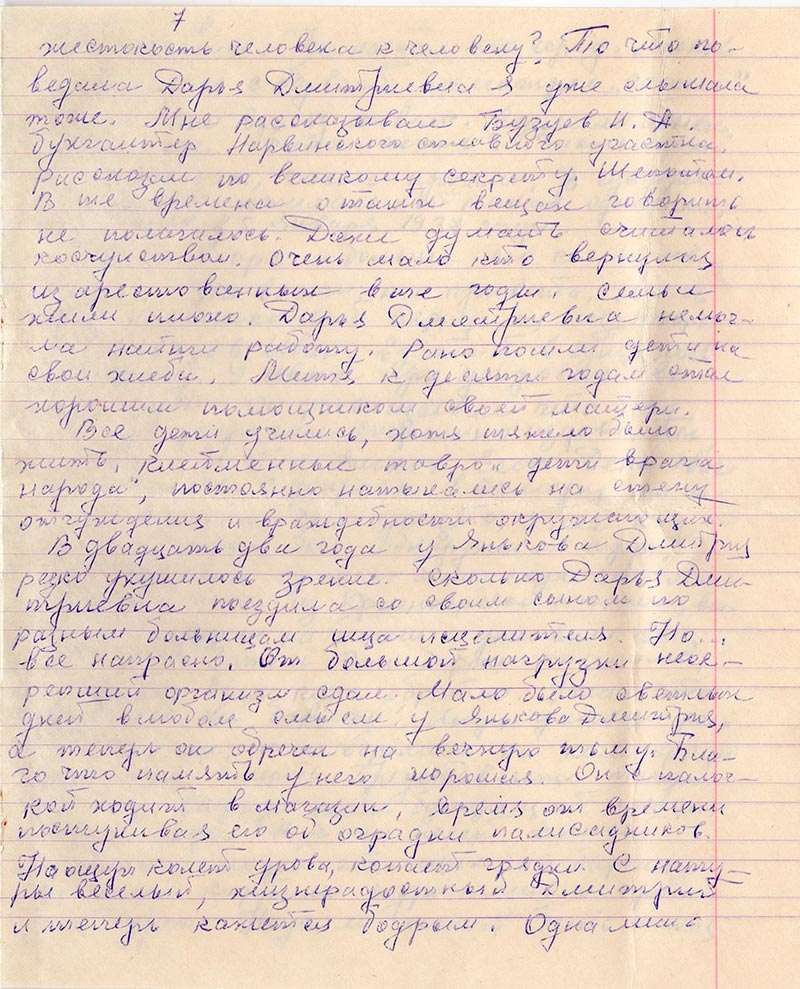 7
жестокость человека к человеку? То что по-
ведала Дарья Дмитриевна я уже слышала
тоже. Мне рассказывал Бузуев И. А.
бухгалтер Нарвинского сплавного участка.
Рассказал по великому секрету. Шепотом.
В те времена о таких вещах говорить
не полагалось. Даже думать считалось
кощунством. Очень мало кто вернулся
из арестованных в те годы. Семьи
жили плохо. Дарья Дмитриевна не мог-
ла найти работу. Рано пошли дети на
свои хлеба. Митя к десяти годам стал
хорошим помощником своей матери.
Все дети учились, хотя тяжело было
жить, клейменные тавро „дети врага
народа", постоянно натыкались на стену
отчуждения и враждебности окружающих.
В двадцать два года у Янькова Дмитрия
резко ухушилось зрение. Сколько Дарья Дми-
триевна поездила со своим сыном по
разным больницам ища исцелителя. Но...
все напрасно. От большой нагрузки неок-
репший организм сдал. Мало было светлых
дней в любом смысле у Янькова Дмитрия,
а теперь он обречен на вечную тьму. Бла-
го что память у него хорошая. Он с палоч-
кой ходит в магазин, время от времени
постукивая ею об оградки палисадников.
Наощуп колет дрова, копает грядки. С нату-
ры веселый, жизнерадостный Дмитрий
и теперь кажется бодрым. Одна лишь